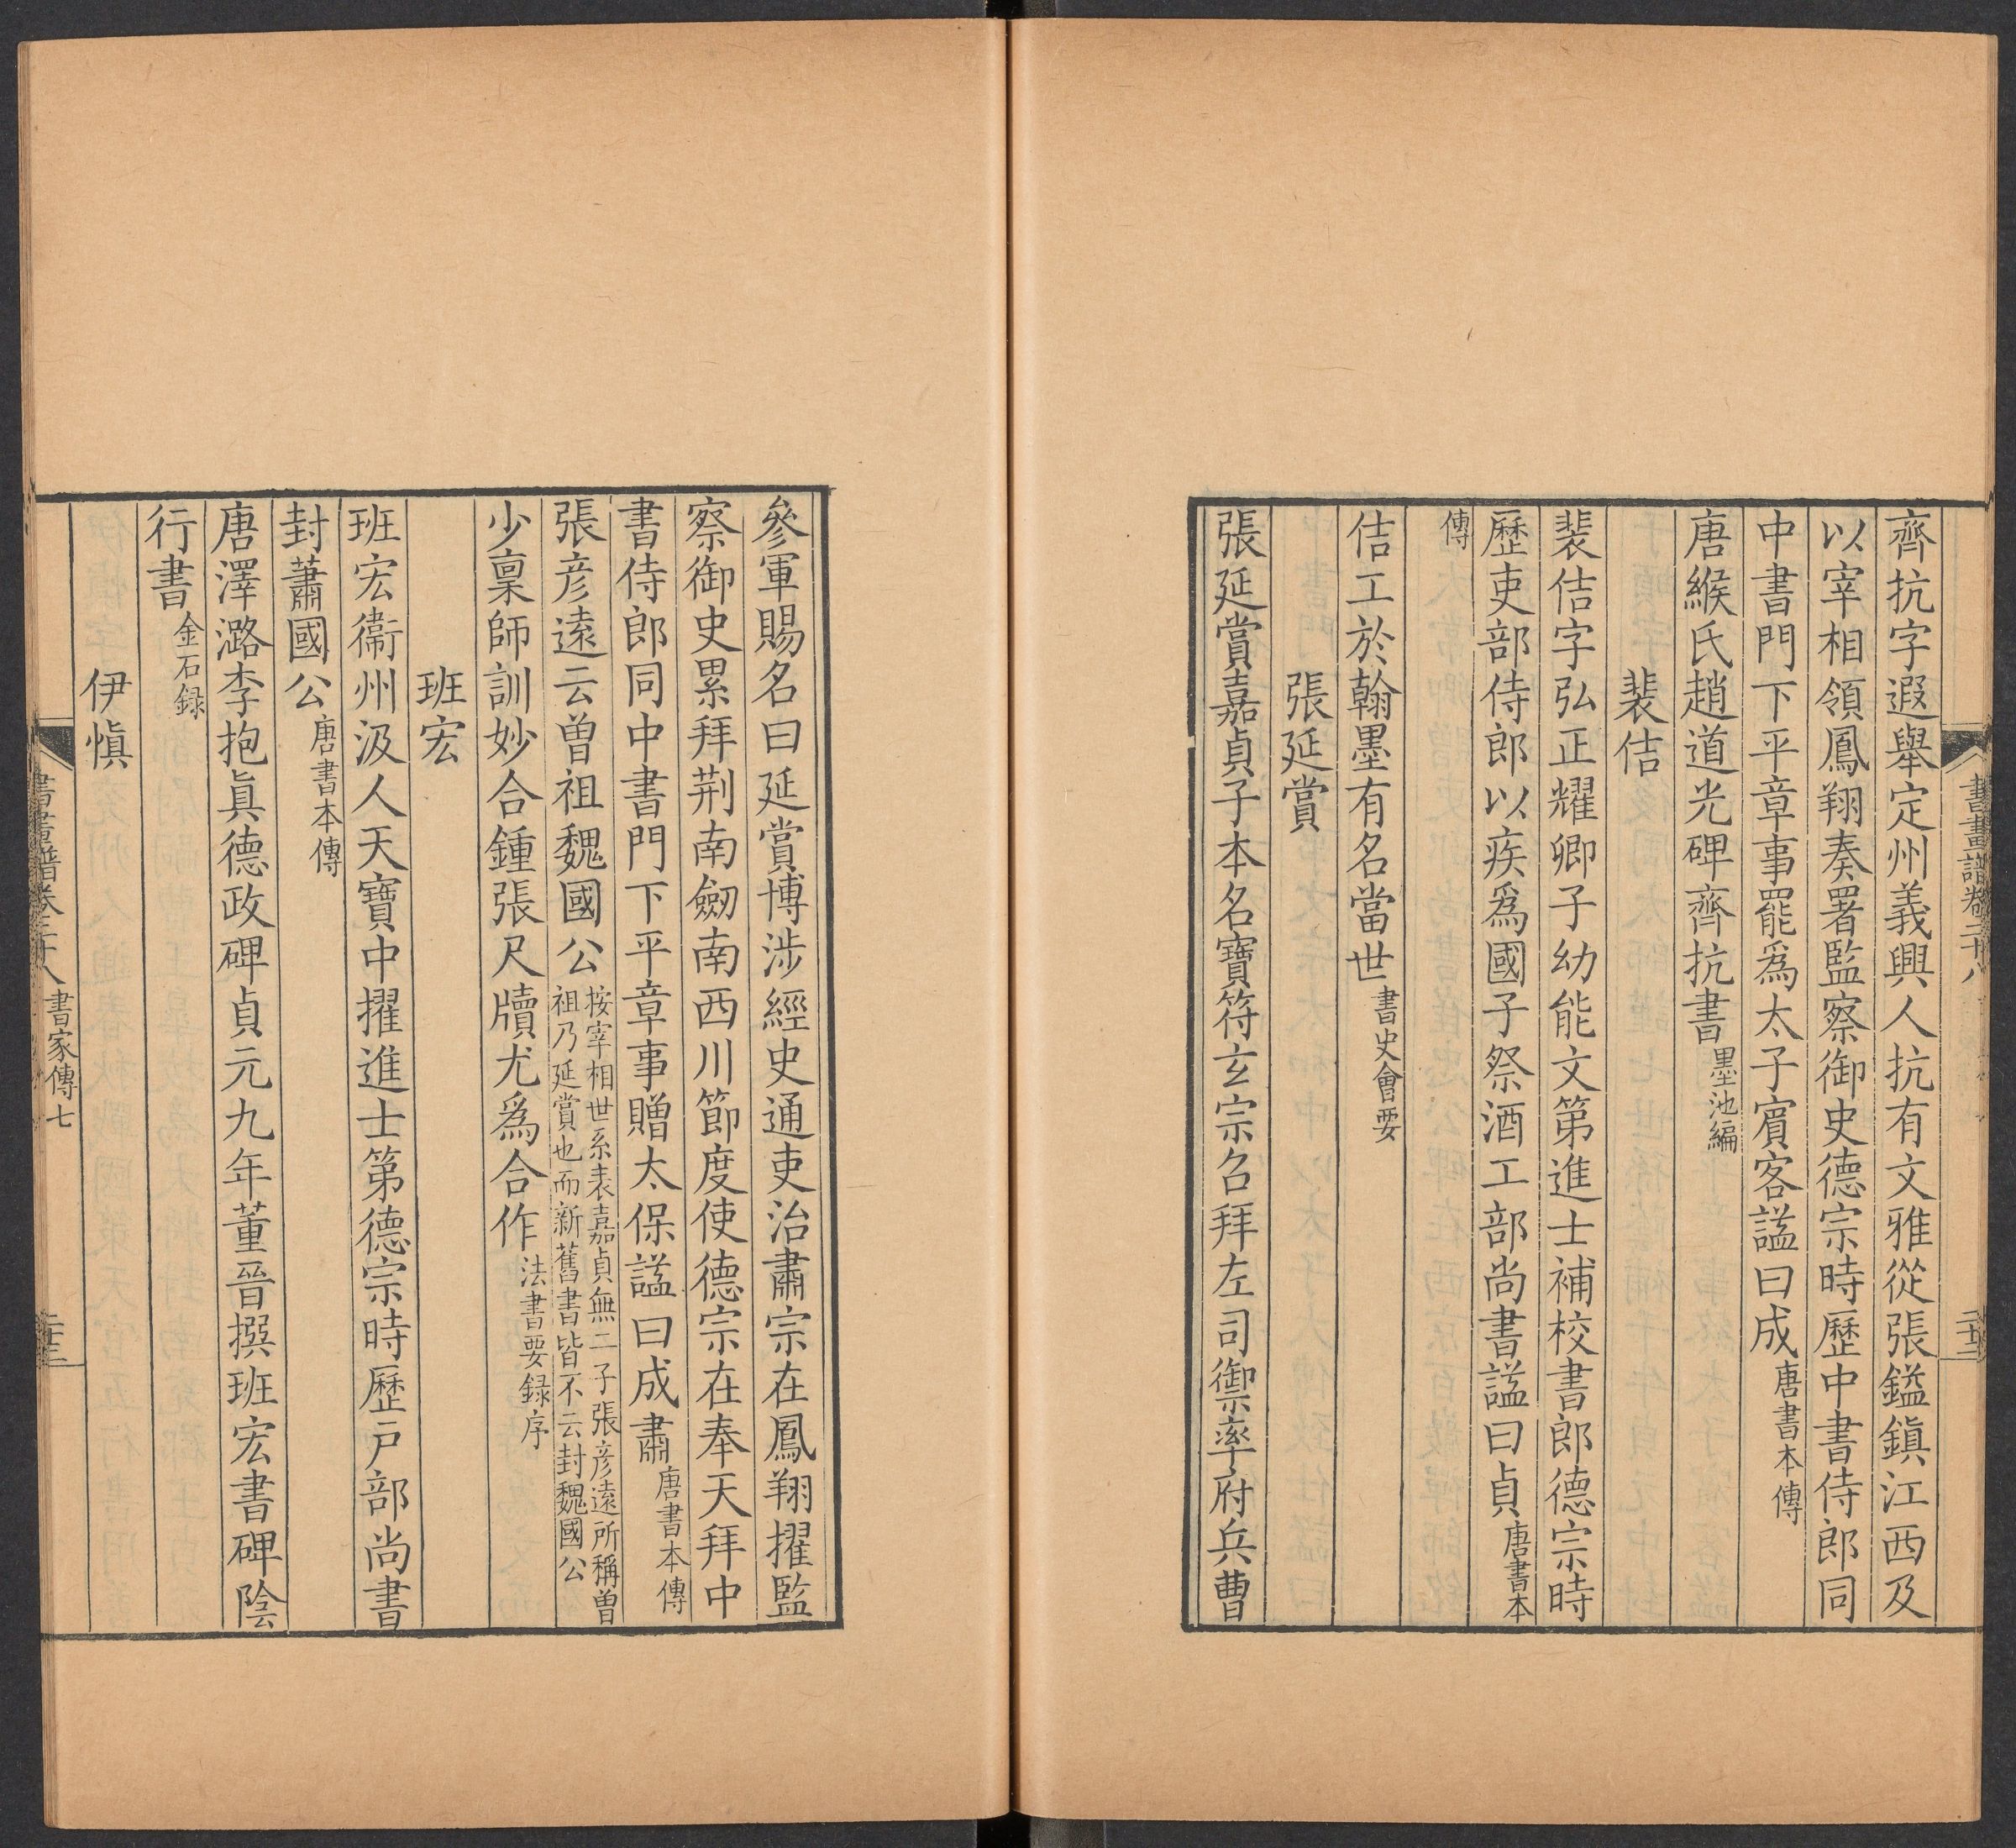 齊抗字遐舉定州義興人抗有文雅從張鎰鎮江西及
以宰相領鳳翔奏署監察御史德宗時歷中書侍郎同
中書門下平章事罷爲太子賓客諡曰成唐書本傳
唐緱氏趙道光碑齊抗書墨池編
裴佶
裴佶字弘正耀卿子幼能文第進士補校書郎德宗時
歷吏部侍郎以疾爲國子祭酒工部尚書諡曰貞唐書本
傳
佶工於翰墨有名當世書史會要
張延賞
張延賞嘉貞子本名寶符玄宗召拜左司禦率府兵曹
參軍賜名曰延賞博涉經史通吏治肅宗在鳳翔擢監
察御史累拜荆南劒南西川節度使德宗在奉天拜中
書侍郎同中書門下平章事贈太保諡曰成肅唐書本傳
張彦遠云曾祖魏國公按宰相世系表嘉貞無二子張彦遠所稱曾
祖乃延賞也而新舊書皆不云封魏國公
少稟師訓妙合鍾張尺牘尤爲合作法書要録序
班宏
班宏衞州汲人天寶中擢進士第德宗時歷戸部尚書
封蕭國公唐書本傳
唐澤潞李抱眞德政碑貞元九年董晉撰班宏書碑陰
行書金石録
伊愼
書畫譜卷二十八 書家傳七